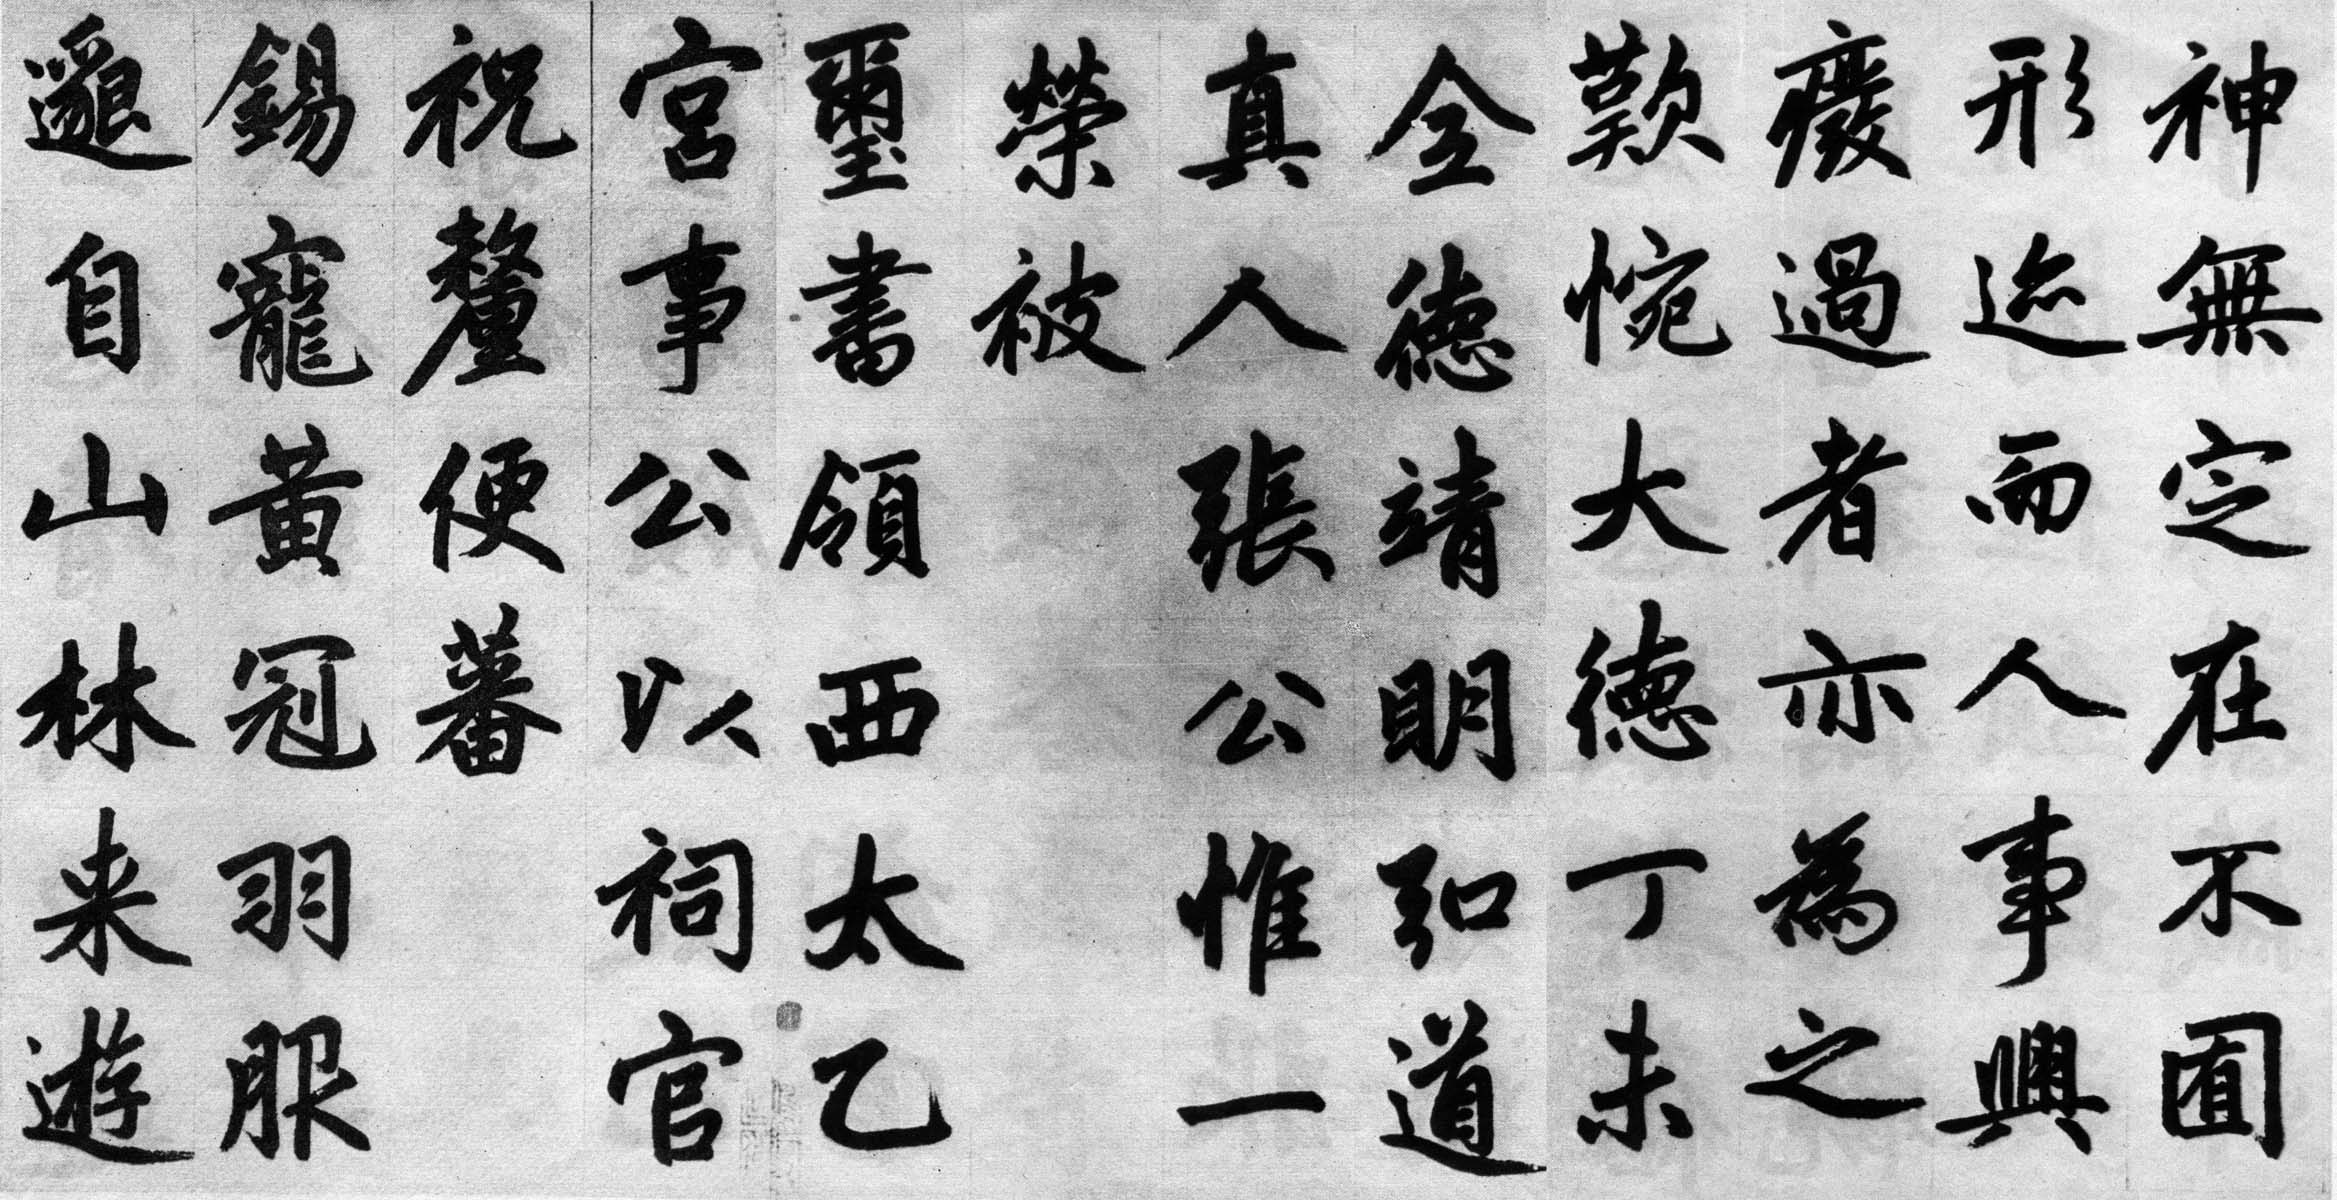 神無定在不囿
形迹而人事興
癈過者亦為之
歎惋大德丁未
全德靖明弘道
真人張公惟一
榮被
璽書領西太乙
宮事公以祠官
祝釐便蕃
錫寵黃冠羽服
邈自山林来遊